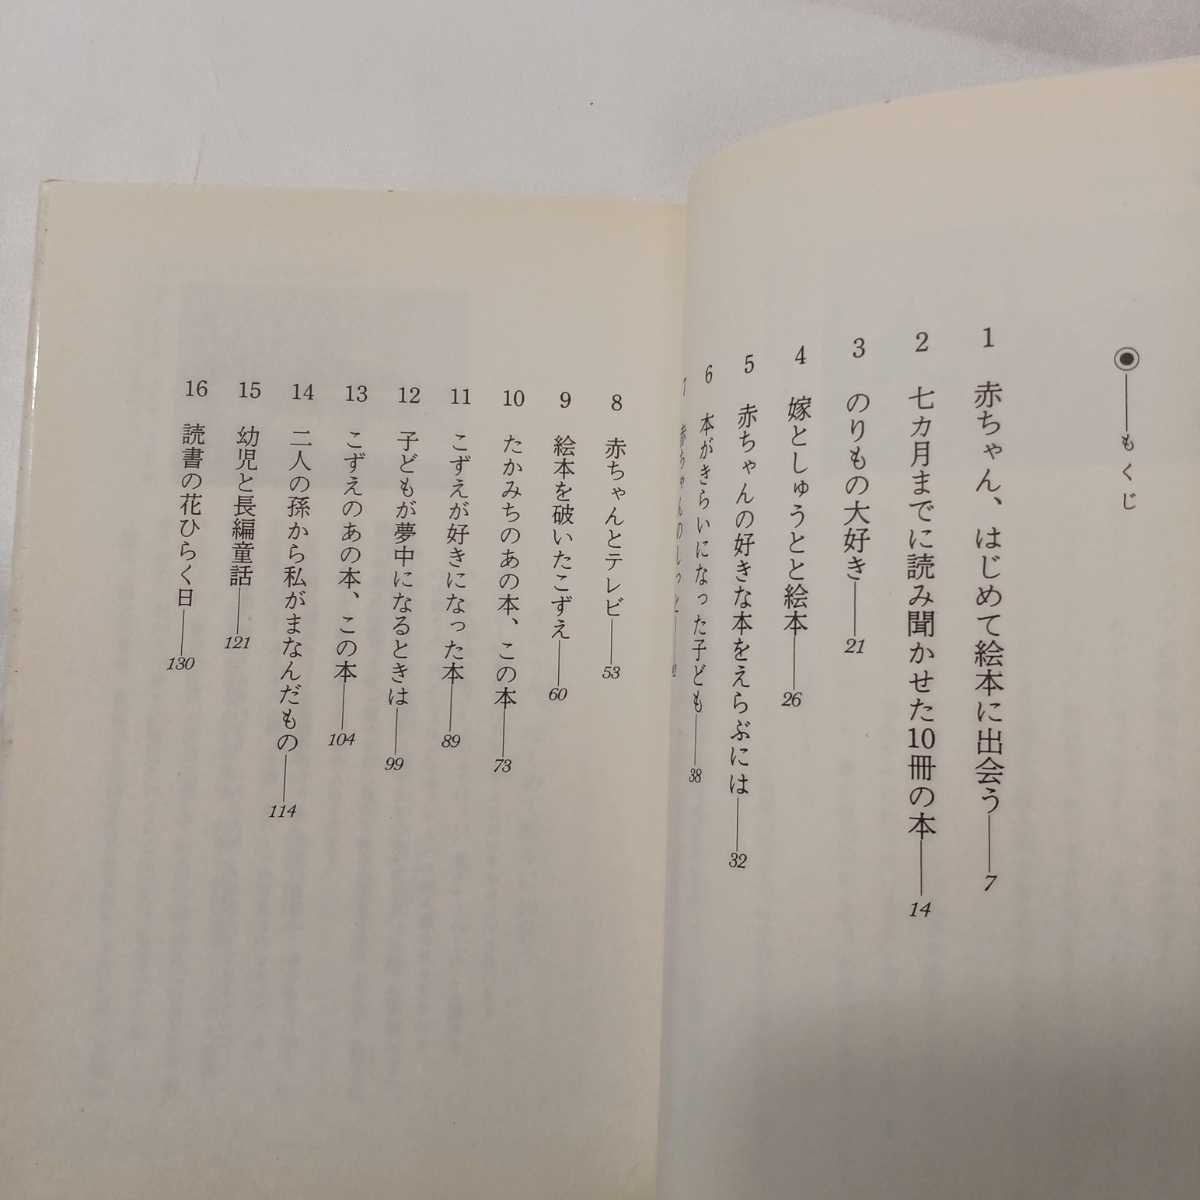 ◉――もくじ
1 赤ちゃん、はじめて絵本に出会う――7
2 七カ月までに読み聞かせた10冊の本――14
3 のりもの大好き――21
4 嫁としゅうとと絵本――26
5 赤ちゃんの好きな本をえらぶには――32
6 本がきらいになった子ども――38
7 赤ちゃんのしっと――
8 赤ちゃんとテレビ――53
9 絵本を破いたこずえ――60
10 たかみちのあの本、この本――73
11 こずえが好きになった本――89
12 子どもが夢中になるときは――99
13 こずえのあの本、この本――104
14 二人の孫から私がまなんだもの――114
15 幼児と長編童話――121
16 読書の花ひらく日――130